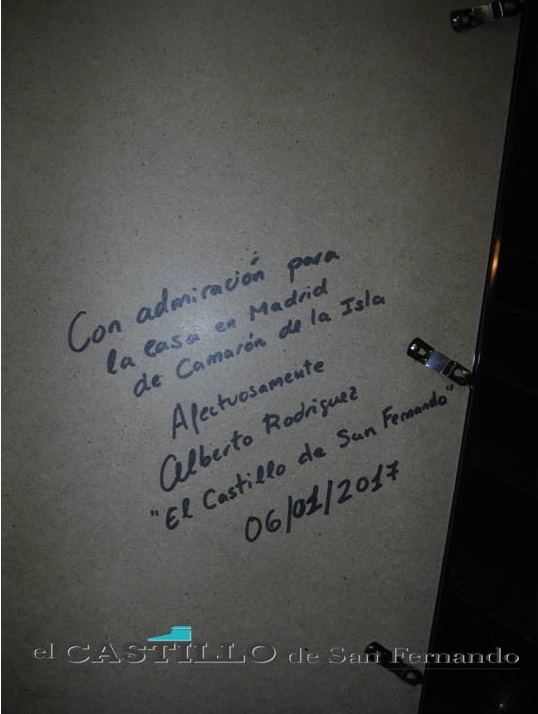 Con admiración para
la casa en Madrid
de Camarón de la Isla
Afectuosamente
Alberto Rodriguez
"El Castillo de San Fernando"
06/01/2017
el CASTILLO de San Fernando